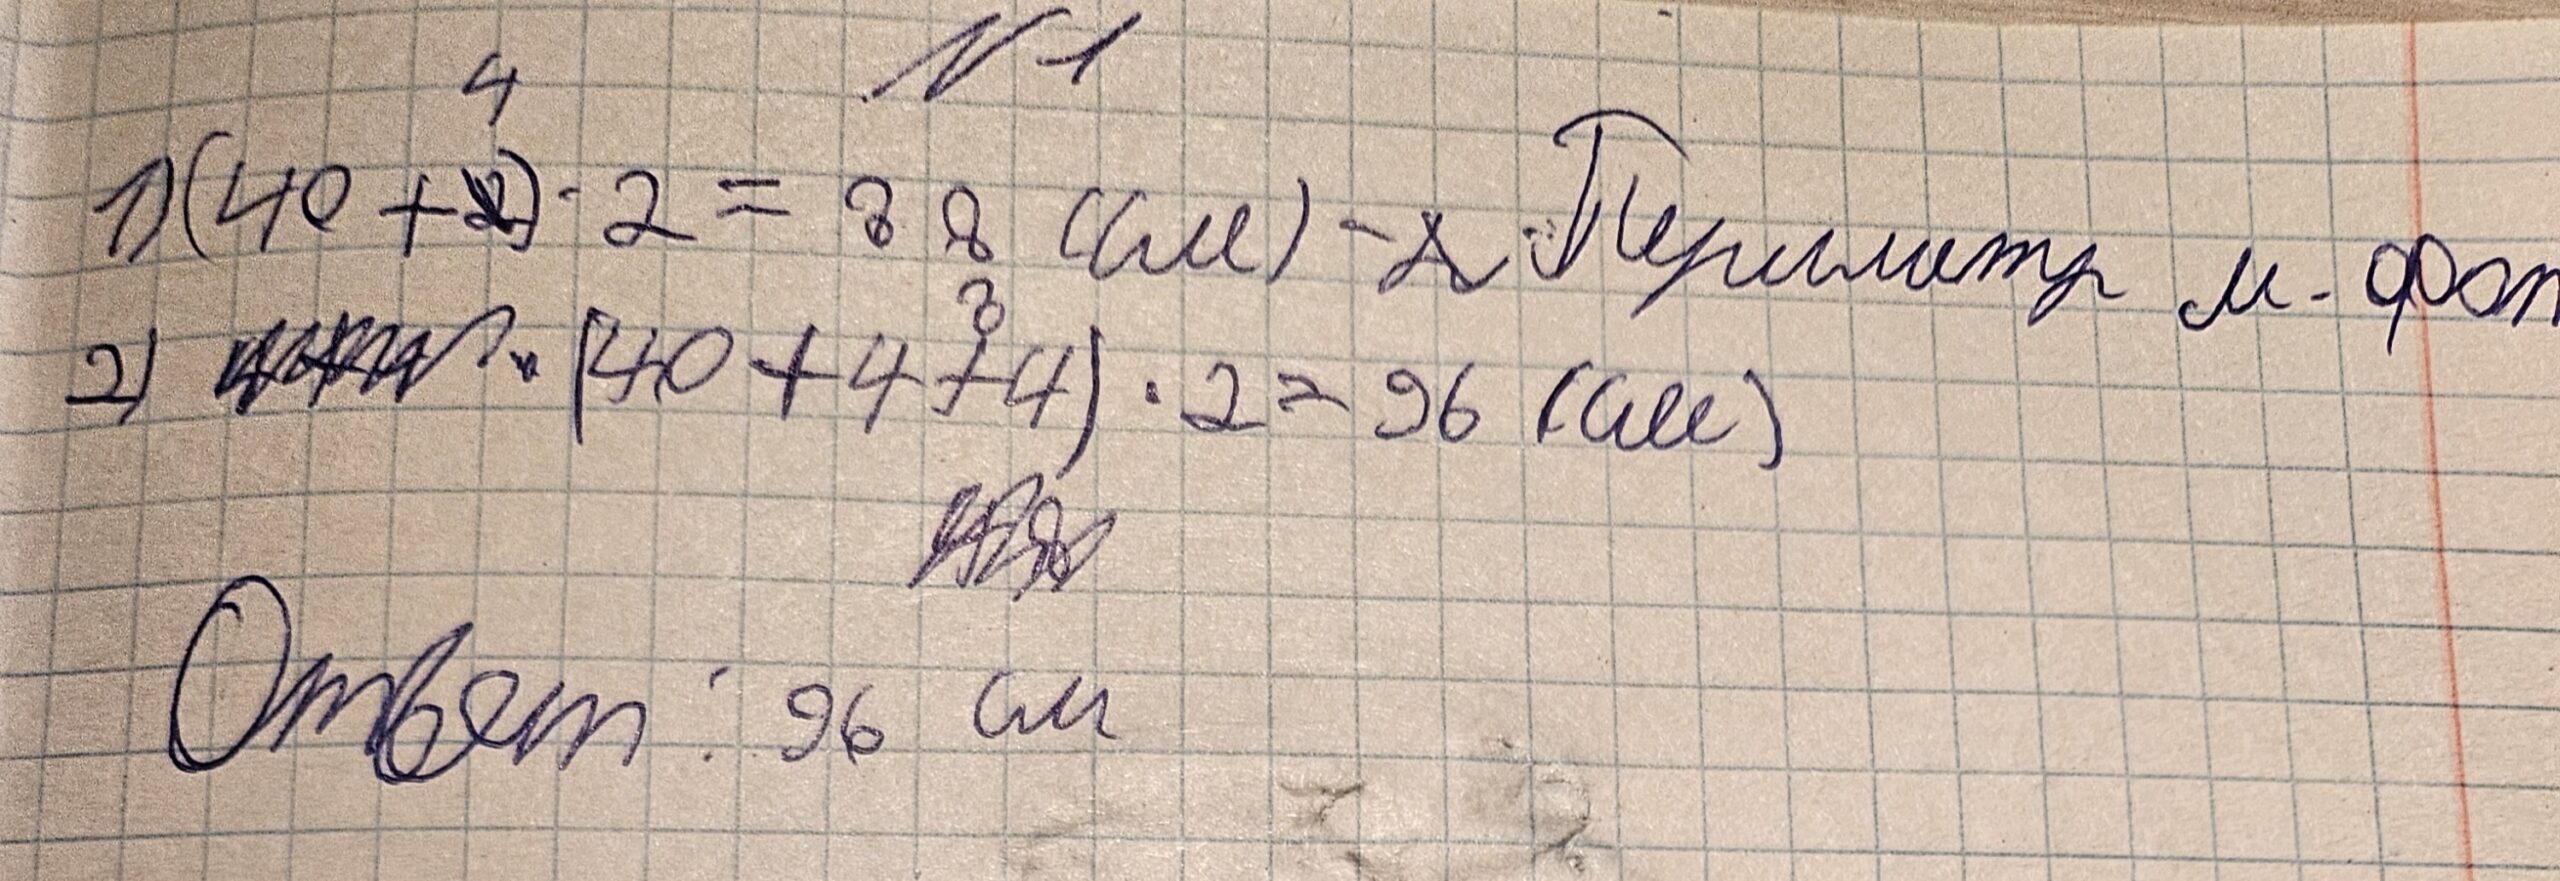 N 1
4
1) (40 + 2) · 2 = 88 (см) - Периметр м. фот
8
2) (40 + 4 + 4) · 2 = 96 (см)
Ответ: 96 см